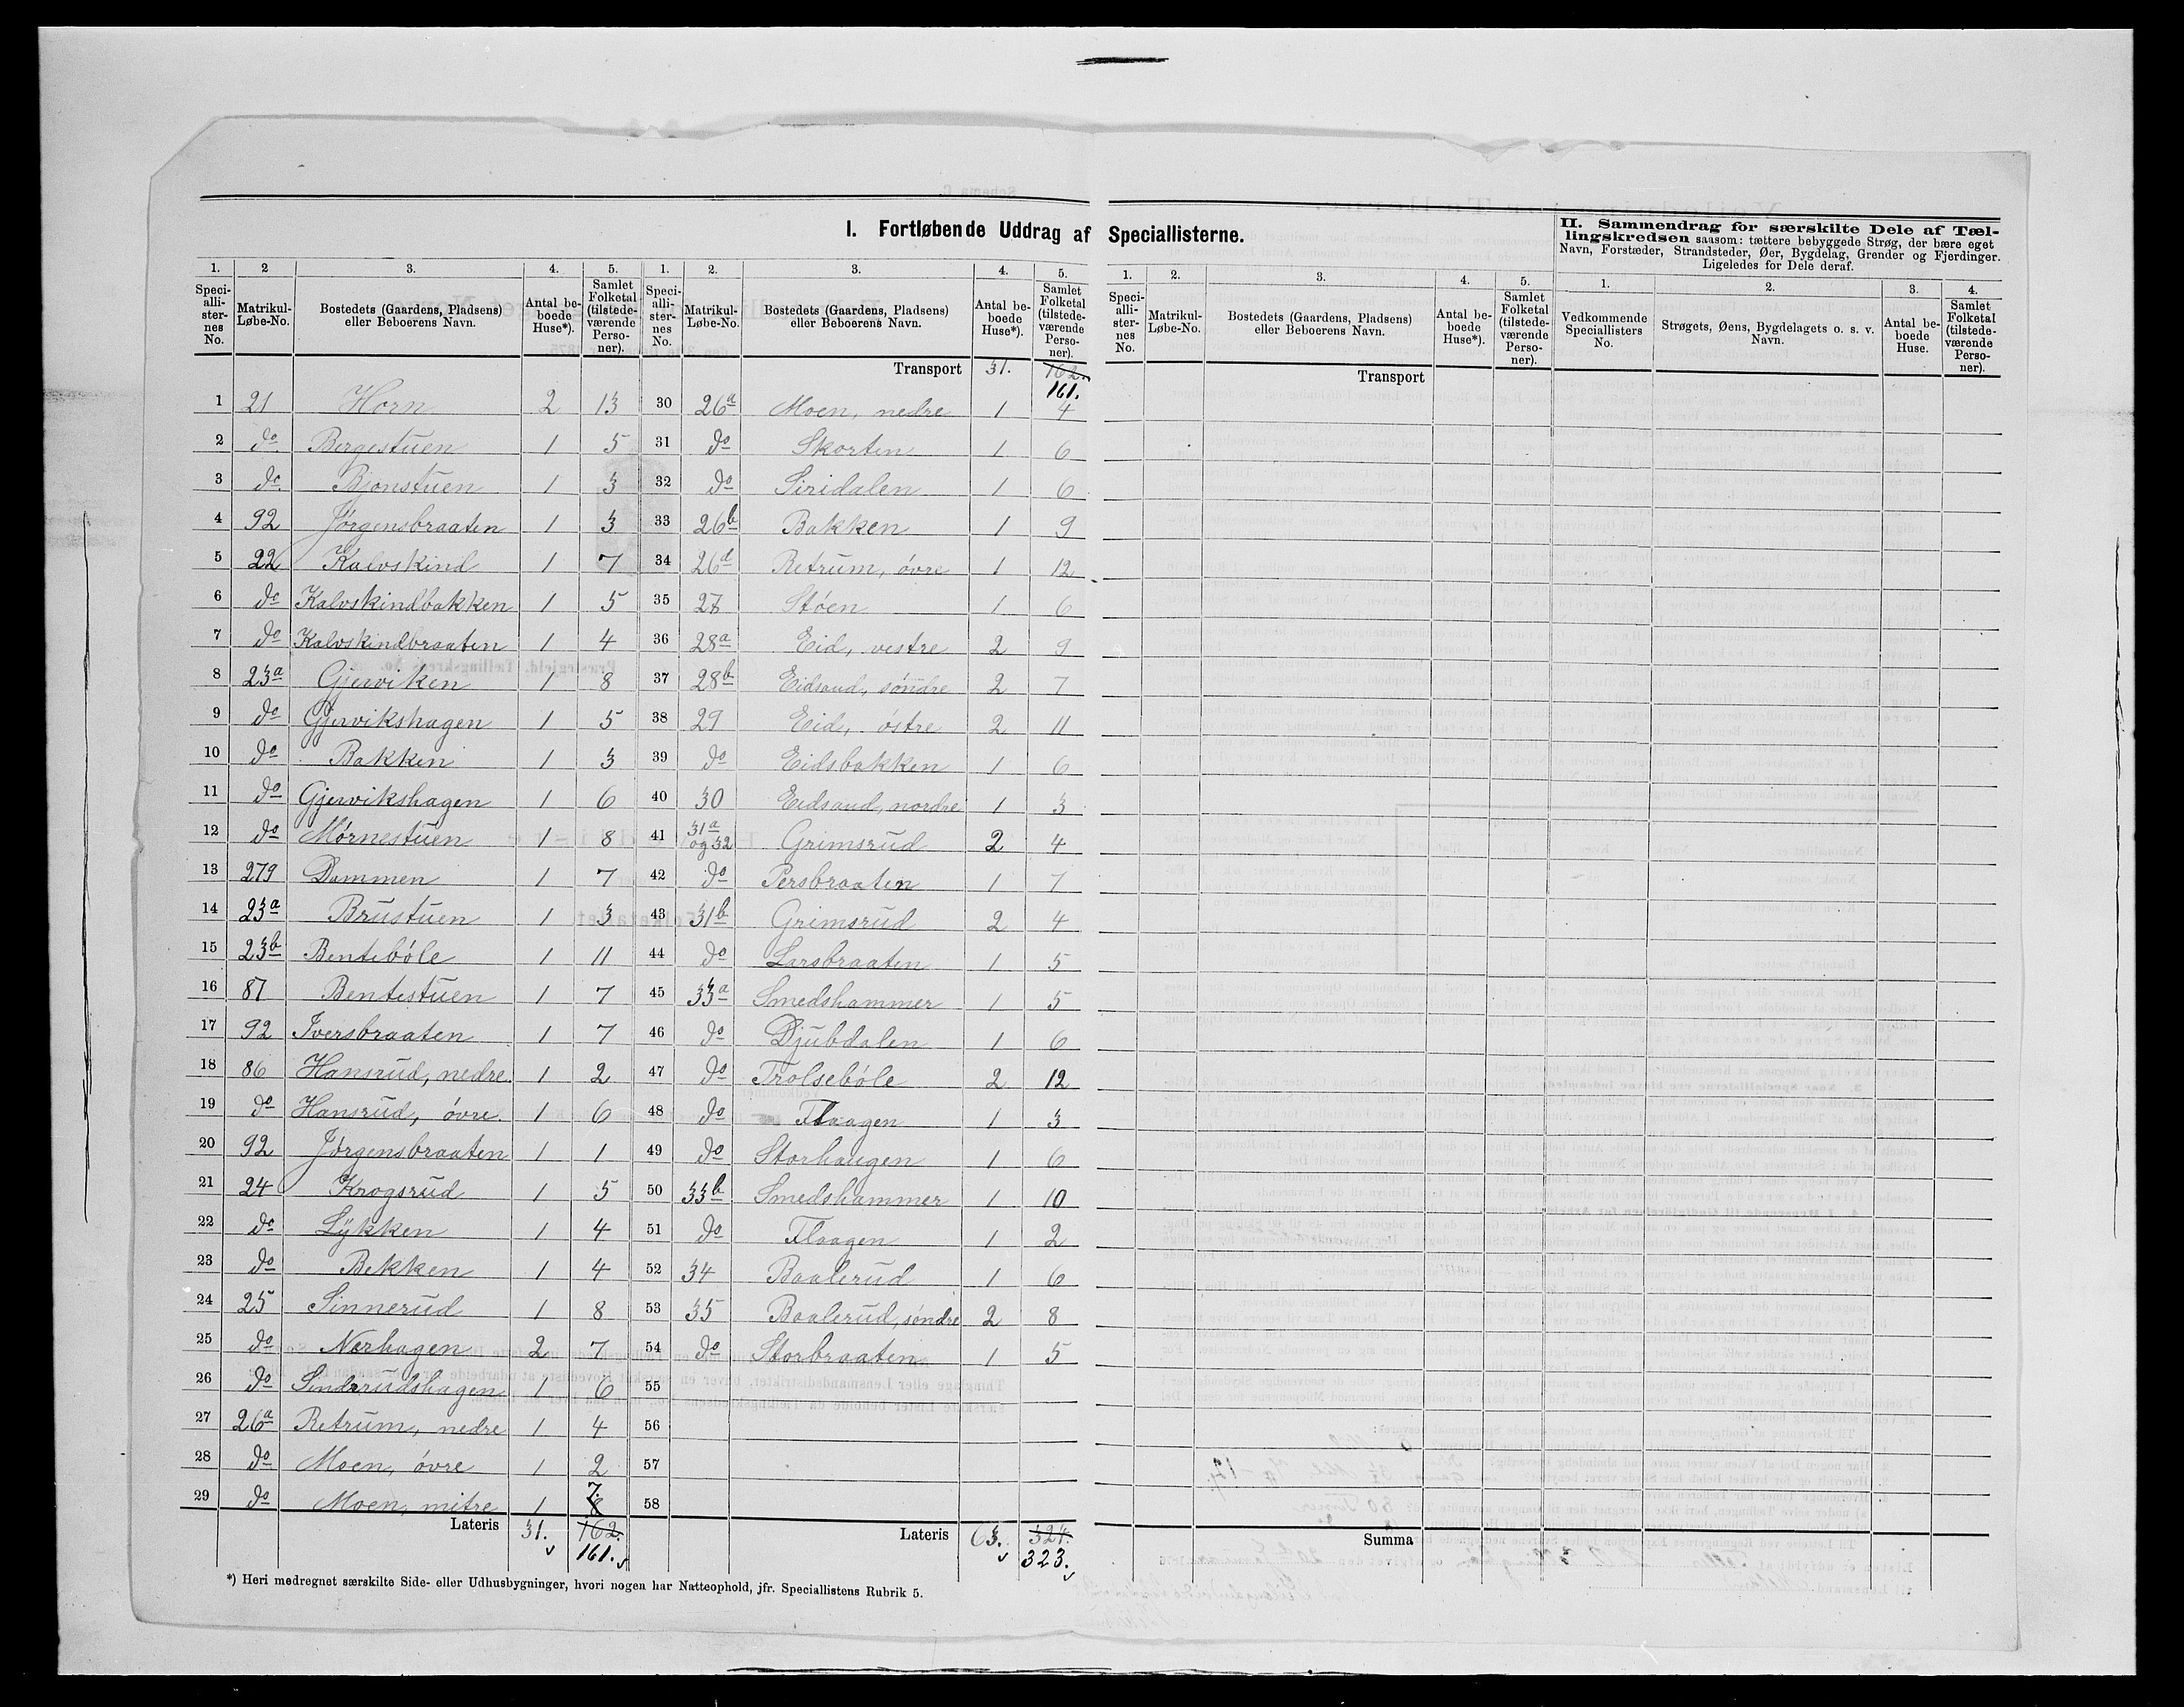 I. Fortløbende Uddrag af Speciallisterne.
II. Sammendrag for særskilte Dele af Tællingskredsen saasom: tættere bebyggede Strøg, der bære eget
Navn, Forstæder, Strandsteder, Øer, Bygdelag, Grender og Fjerdinger.
Ligeledes for Dele deraf.
1. 2 3. 4. 5. 1. 2. 3. 4. 5.
Speciallisternes No. Matrikul-Løbe-No. Bostedets (Gaardens, Pladsens) eller Beboerens Navn. Antal beboede Huse*). Samlet Folketal (tilstedeværende Personer). Speciallisternes No. Matrikul-Løbe-No. Bostedets (Gaardens, Pladsens) eller Beboerens Navn. Antal beboede Huse*). Samlet Folketal (tilstedeværende Personer).
1 21 Horn 2 13
2 do. Bergestuen 1 5
3 do. Bjonstuen 1 3
4 92 Jørgensbraaten 1 3
5 22 Kalvskind 1 7
6 do Kalvskindbakken 1 5
7 do Kalvskindbraaten 1 4
8 23a Gjerviken 1 8
9 do Gjervikshagen 1 5
10 do Bakken 1 3
11 do Gjervikshagen 1 6
12 do Mørnestuen 1 8
13 279 Dammen 1 7
14 23a Brustuen 1 3
15 23b Bentebøle 1 11
16 87 Bentestuen 1 7
17 92 Iversbraaten 1 7
18 86 Hansrud, nedre. 1 2
19 do Hansrud, øvre. 1 6
20 92 Jørgensbraaten 1 1
21 24 Krogsrud 1 5
22 do Lykken 1 4
23 do Bekken 1 4
24 25 Sinnerud 1 8
25 do Nærhagen 2 7
26 do Sinderudshagen 1 6
27 26a Retrum, nedre 1 4
28 do Moen, øvre 1 2
29 do Moen, mitre 1 8 7.
Lateris 31. 162. 161.
Transport 31. 162. 161.
30 26a Moen, nedre 1 4
31 do Skorten 1 6
32 do Siridalen 1 6
33 26b Bakken 1 9
34 26d Retrum, øvre 1 12
35 27 Støen 1 6
36 28a Eid, vestre 2 9
37 28b Eidsaud, søndre 2 7
38 29 Eid, østre 2 11
39 do Eidsbakken 1 6
40 30 Eidsaud, nordre 1 3
41 31a og 32 Grimsrud 2 4
42 do Persbraaten 1 7
43 31b Grimsrud 2 4
44 do Larsbraaten 1 5
45 33a Smedshammer 1 5
46 do Djubdalen 1 6
47 do Trolsebøle 2 12
48 do Flaagen 1 3
49 do Storhaugen 1 6
50 33b Smedshammer 1 10
51 do Flaagen 1 2
52 34 Baalerud 1 6
53 35 Baalerud, søndre 2 8
54 do Storbraaten 1 5
55
56
57
58
Lateris 63. 324. 323.
*) Heri medregnet særskilte Side- eller Udhusbygninger, hvori nogen har Natteophold, jfr. Speciallistens Rubrik 5.
1. 2. 3. 4. 5. 1. 2. 3. 4.
Speciallisternes No. Matrikul-Løbe-No. Bostedets (Gaardens, Pladsens) eller Beboerens Navn. Antal beboede Huse*). Samlet Folketal (tilstedeværende Personer). Vedkommende Speciallisters No. Strøgets, Øens, Bygdelagets o. s. v. Navn. Antal beboede Huse. Samlet Folketal (tilstedeværende Personer).
Transport
Summa